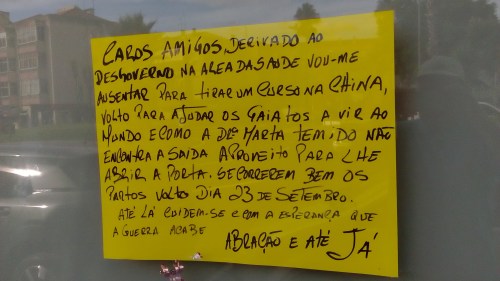 CAROS AMIGOS, DERIVADO AO
DESGOVERNO NA AREA DA SAUDE VOU-ME
AUSENTAR PARA TIRAR UM CURSO NA CHINA,
VOLTO PARA AJUDAR OS GAIATOS A VIR AO
MUNDO E COMO A DRª MARTA TEMIDO NÃO
ENCONTRA A SAIDA APROVEITO PARA LHE
ABRIR A PORTA. SE CORREREM BEM OS
PARTOS VOLTO DIA 23 DE SETEMBRO.
ATÉ LÁ CUIDEM-SE E COM A ESPERANÇA QUE
A GUERRA ACABE
ABRAÇÃO E ATÉ JÁ